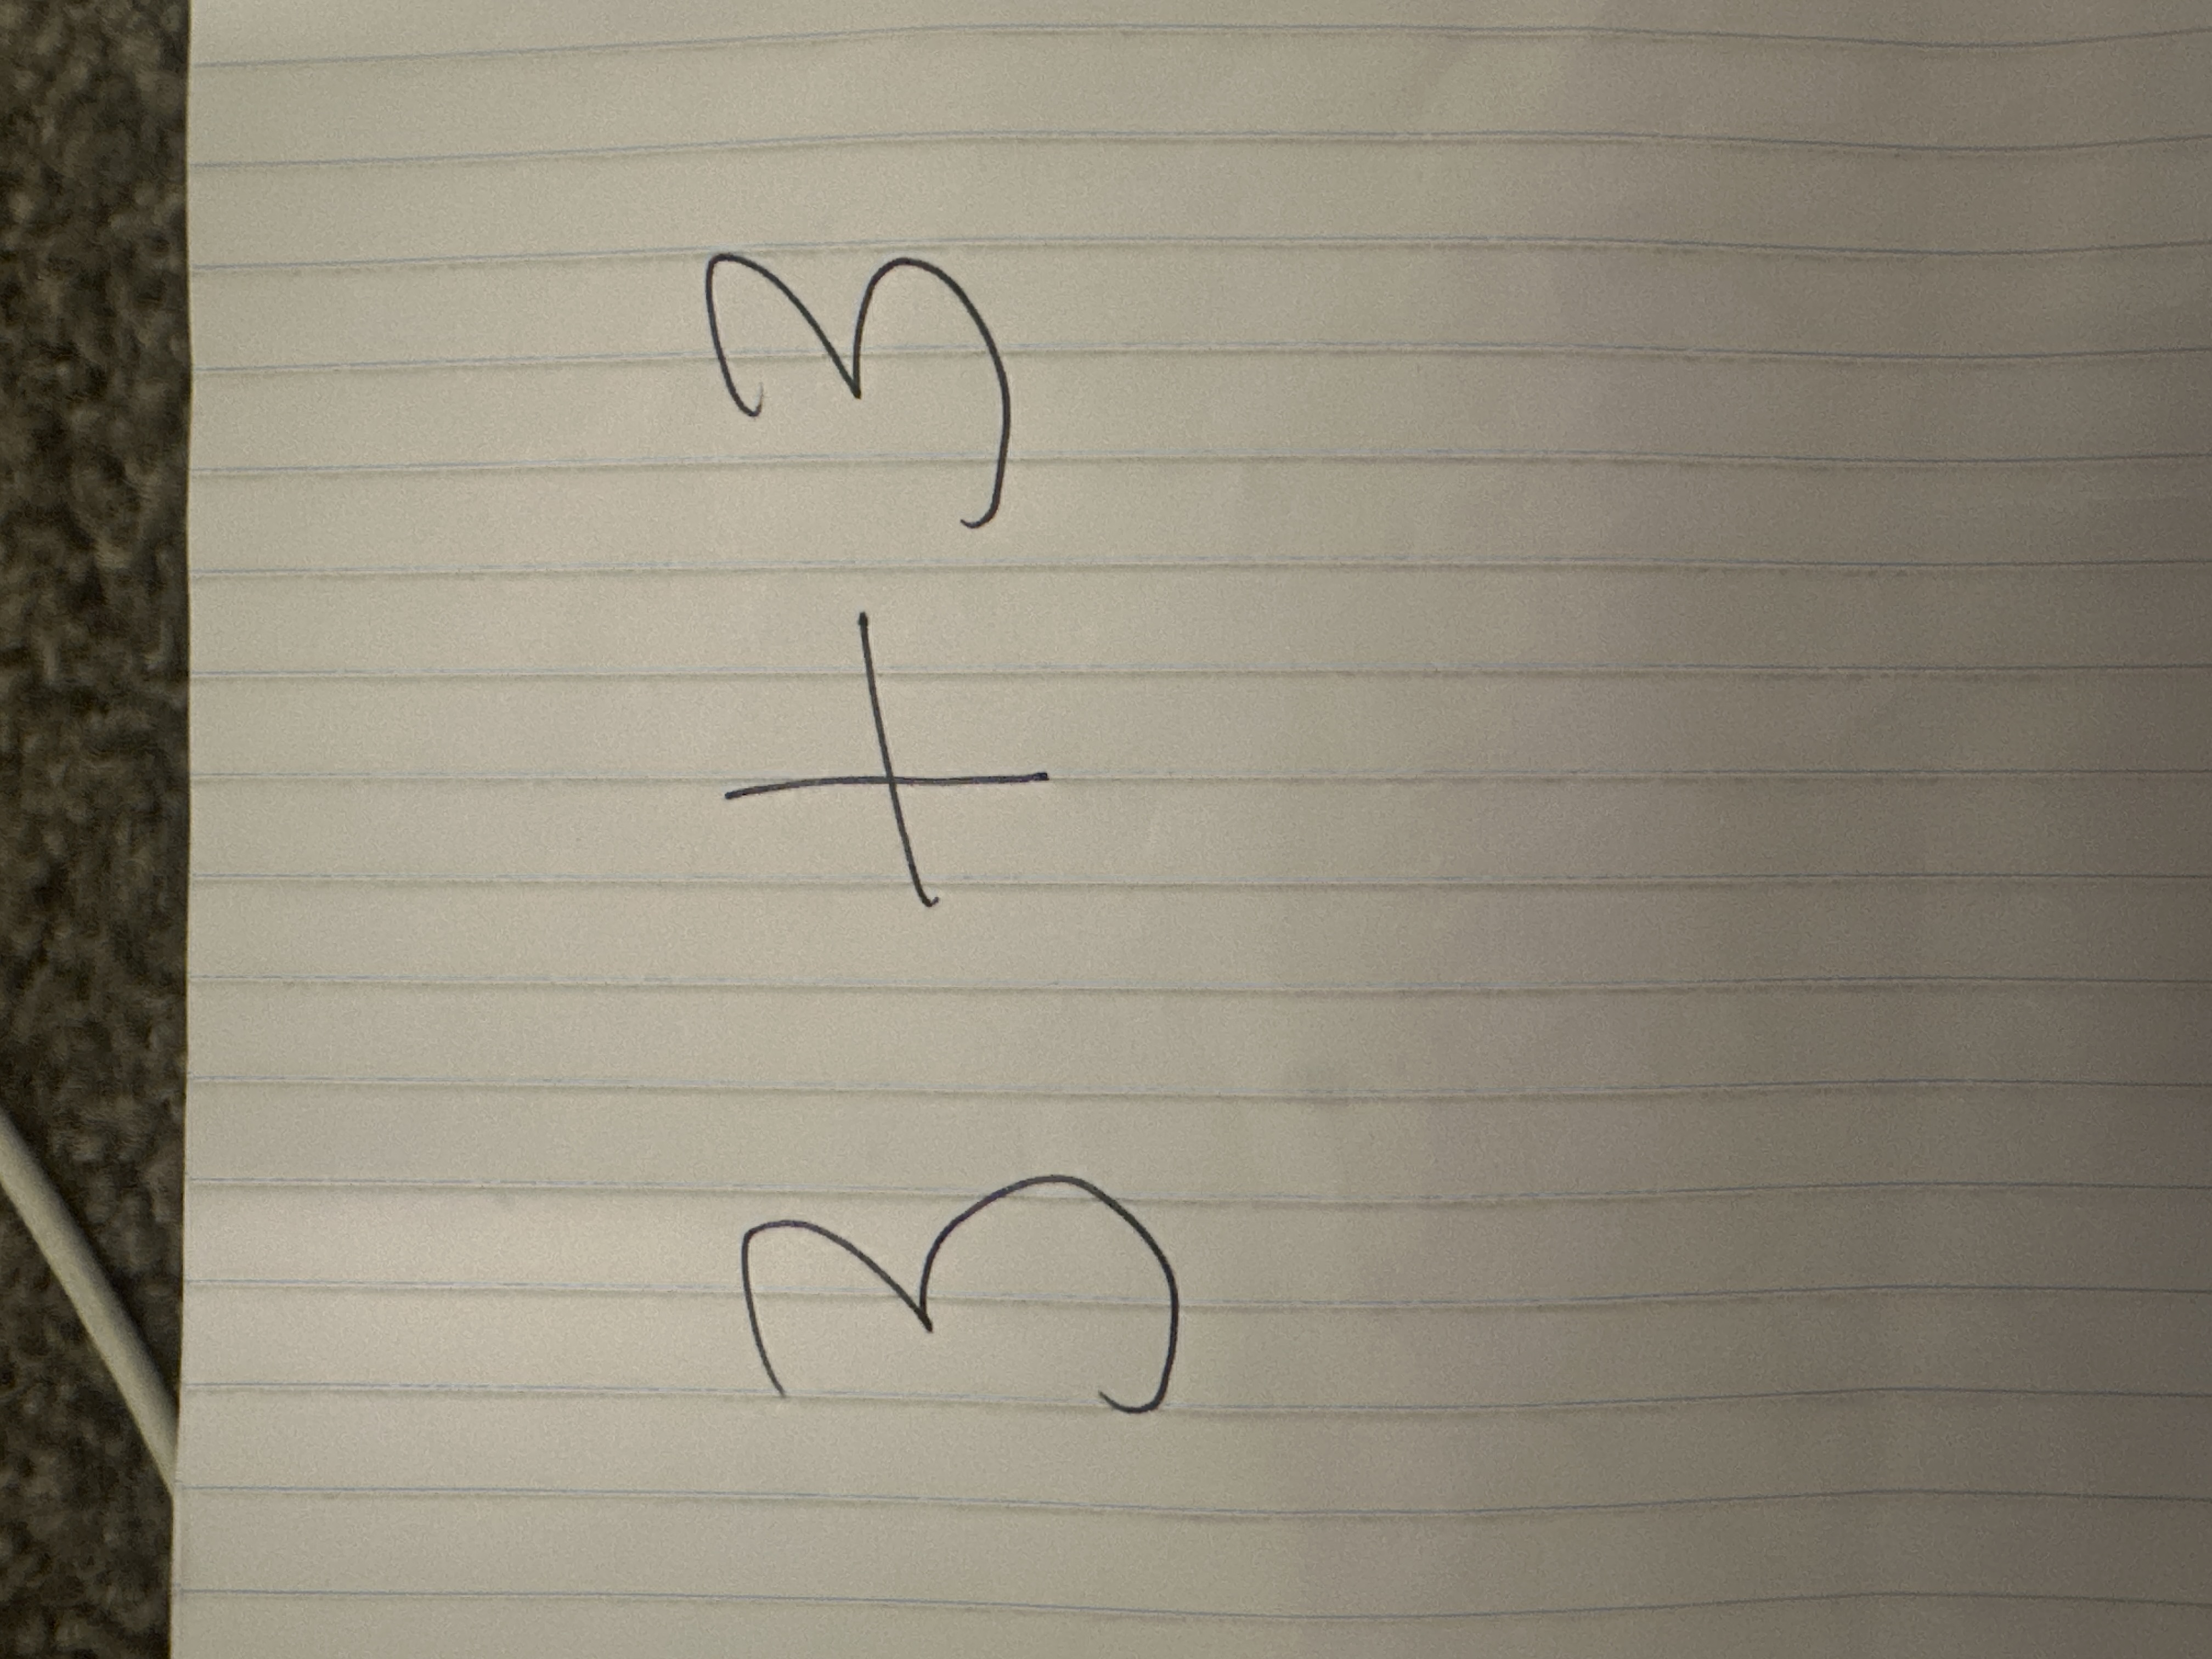 3 + 3